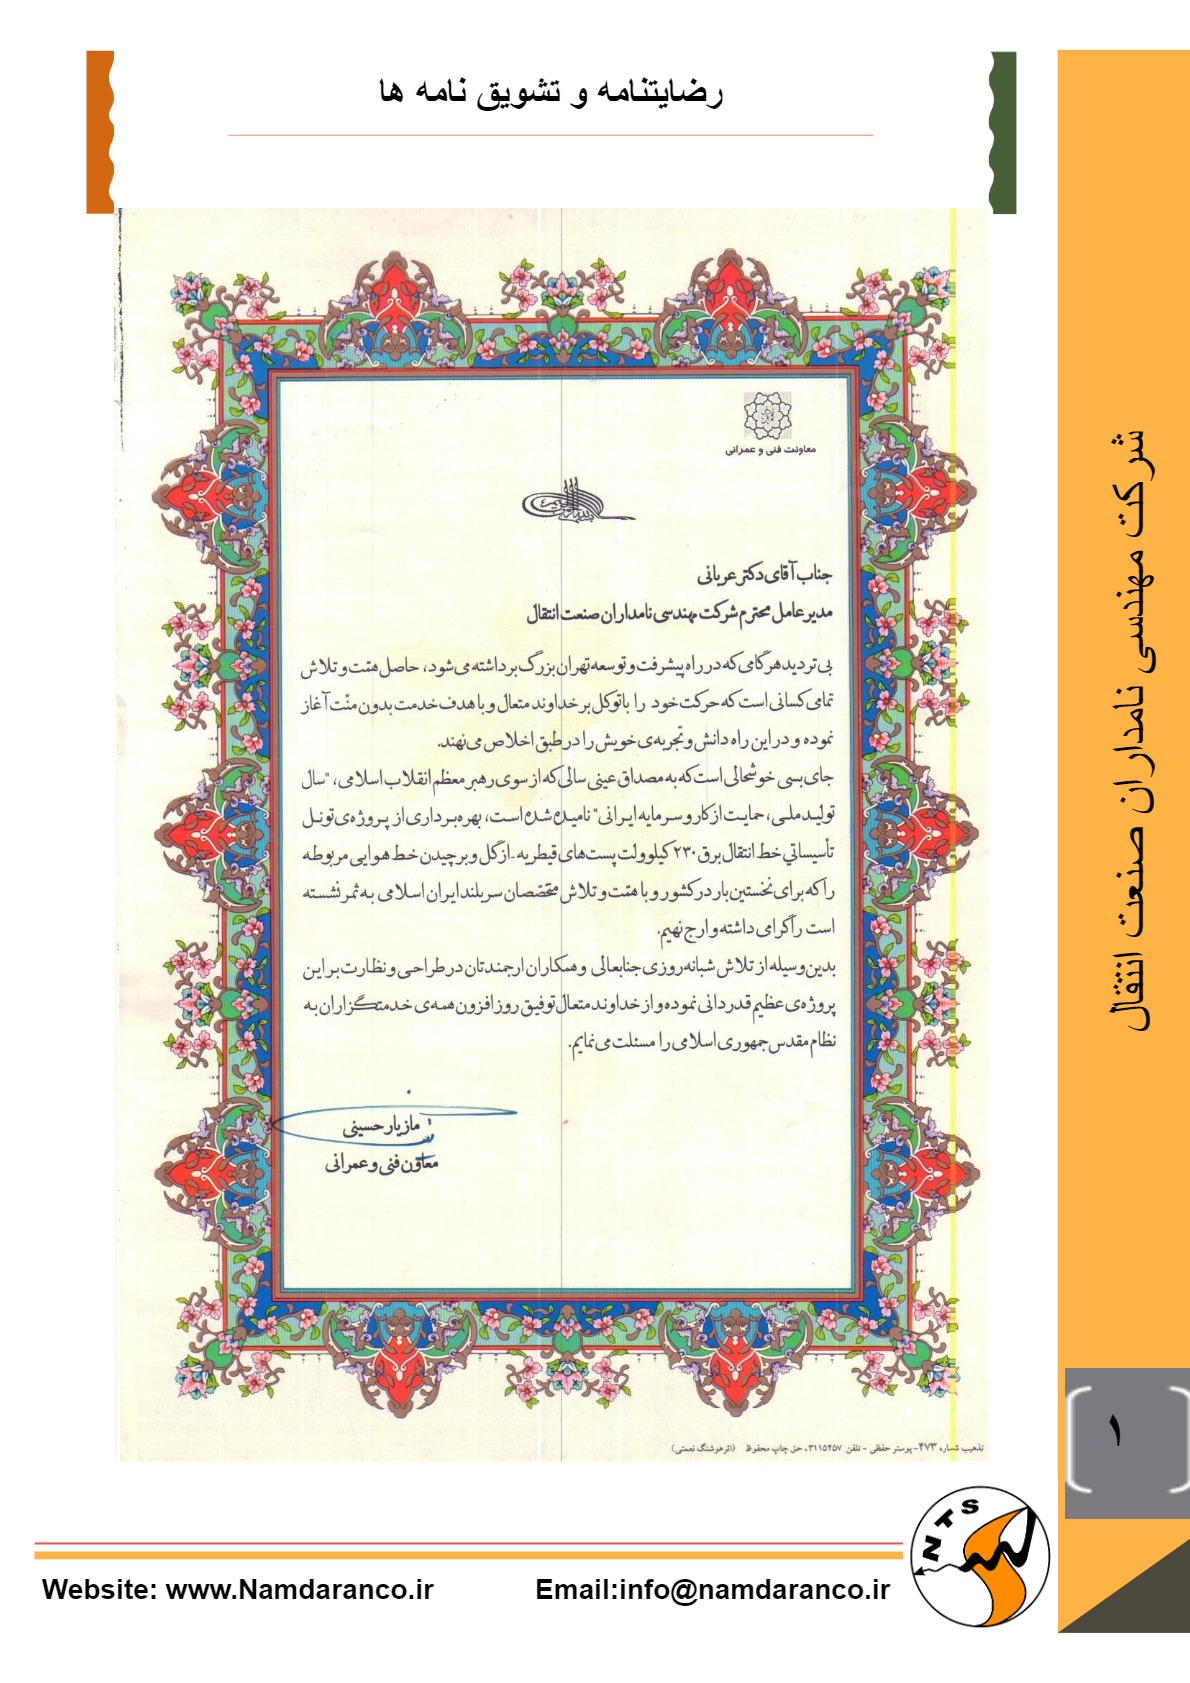 رضایتنامه و تشویق نامه ها
معاونت فنی و عمرانی
جناب آقای دکتر عریانی
مدیرعامل محترم شرکت مهندسی نامداران صنعت انتقال
بی‌تردید هر گامی که در راه پیشرفت و توسعه تهران بزرگ برداشته می‌شود، حاصل همّت و تلاش
تمامی کسانی است که حرکت خود را با توکل بر خداوند متعال و با هدف خدمت بدون منّت آغاز
نموده و در این راه دانش و تجربه‌ی خویش را در طبق اخلاص می‌نهند.
جای بسی خوشحالی است که به مصداق عینی سالی که از سوی رهبر معظم انقلاب اسلامی، "سال
تولید ملی، حمایت از کار و سرمایه ایرانی" نامیده شده است، بهره‌برداری از پروژه‌ی تونل
تأسیساتی خط انتقال برق ۲۳۰ کیلوولت پست‌های قیطریه-ازگل و برچیدن خط هوایی مربوطه
را که برای نخستین بار در کشور و با همّت و تلاش متخصّصان سربلند ایران اسلامی به ثمر نشسته
است را گرامی داشته و ارج نهیم.
بدین وسیله از تلاش شبانه‌روزی جنابعالی و همکاران ارجمندتان در طراحی و نظارت بر این
پروژه‌ی عظیم قدردانی نموده و از خداوند متعال توفیق روزافزون همه‌ی خدمتگزاران به
نظام مقدس جمهوری اسلامی را مسئلت می‌نمایم.
مازیار حسینی
معاون فنی و عمرانی
تذهیب شماره ۴۷۳- پوستر حفظی - تلفن ۳۱۱۵۴۵۷، حق چاپ محفوظ (اثر هوشنگ نعمتی)
شرکت مهندسی نامداران صنعت انتقال
۱
NTS
Website: www.Namdaranco.ir Email:info@namdaranco.ir